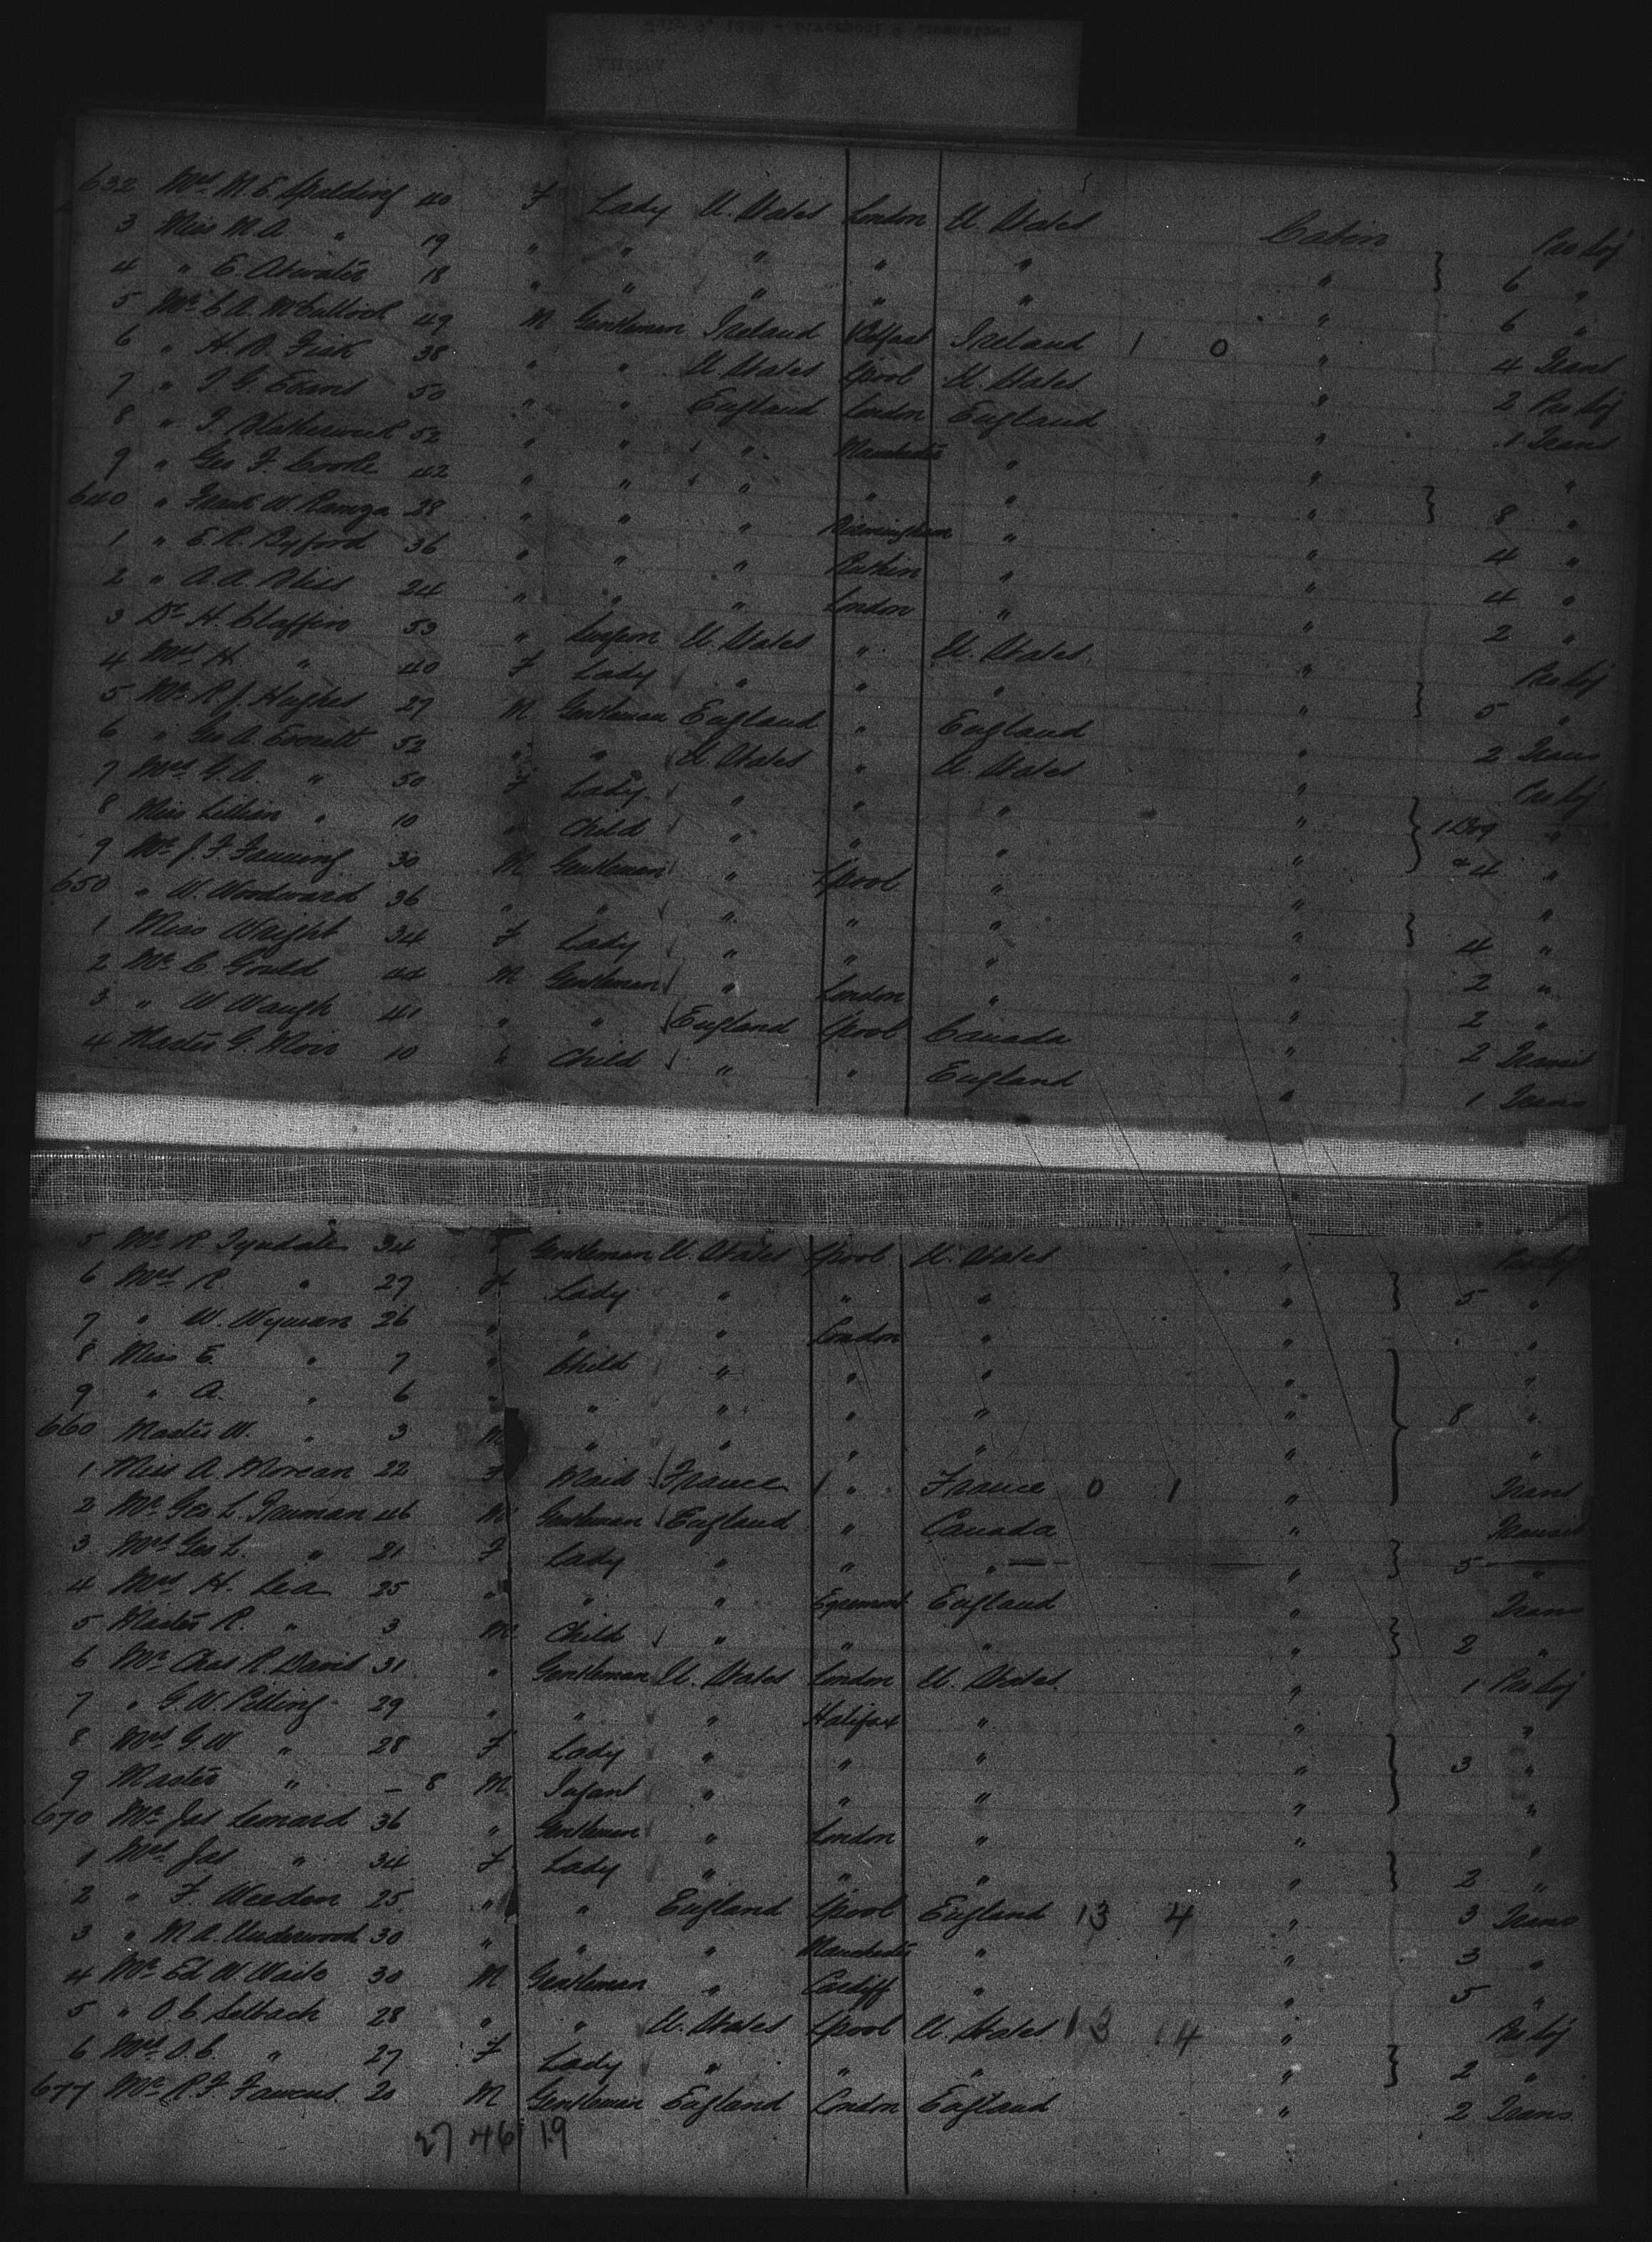 632 Mrs M. E. Spalding 40 F Lady U. States London U. States Cabin Pro Soj
3 Miss M. A. " 19 " " " " " " 6 "
4 " E. Atwater 18 " " " " " " 6 "
5 Mr C. A. McCulloch 49 M Gentleman Ireland Belfast Ireland 1 0 " 4 Trans
6 " H. D. Fisk 38 " " U. States Lpool U. States " 2 Pro Soj
7 " J. G. Evans 50 " " England London England " 1 Trans
8 " J. 52 " " " Manchester " " "
9 " Geo F. Cooke 42 " " " " " " 8 "
640 " Frank W. 28 " " " Birmingham " " 4 "
1 " E. R. Byford 36 " " " " " 4 "
2 " A. A. Bliss 24 " " " London " " 2 "
3 Dr H. Claffin 53 " U. States " U. States " Pro Soj
4 Mrs H. " 40 F Lady " " " " 5 "
5 Mr R. J. Hughes 27 M Gentleman England " England " 2 Trans
6 " Geo A. Everett 52 " " U States " U. States " Pro Soj
7 Mrs G. A. " 50 F Lady " " " " 1 Dog "
8 Miss Lillian " 10 " Child " " " " & 4 "
9 Mr J. F. Fanning 30 M Gentleman " Lpool " " "
650 " W. Woodward 36 " " " " " " 4 "
1 Miss Wright 34 F Lady " " " " 2 "
2 Mr C. Gould 44 M Gentleman " London " " 2 "
3 " W. Waugh 41 " " England Lpool Canada " 2 Transit
4 Master G. 10 " Child " " England " 1 Trans
5 Mr R. Tyndale 34 Gentleman U. States Lpool U. States " Pro Soj
6 Mrs R. " 27 F Lady " " " " 5 "
7 " W. Wyman 26 " " " London " " "
8 Miss E. " 7 " Child " " " " "
9 " A. " 6 " " " " " " 8 "
660 Master W. " 3 M " " " " " "
1 Miss A. Morean 22 F Maid France " France 0 1 " Trans
2 Mr Geo L. Truman 46 M Gentleman England " Canada " Transit
3 Mrs Geo L. " 21 F Lady " " " " 5 "
4 Mrs H. Lea 25 " " " Egremont England " Trans
5 Master R. " 3 M Child " " " " 2 "
6 Mr Chas R. Davis 31 " Gentleman U. States London U. States " 1 Pro Soj
7 " G. W. Pilling 29 " " " Halifax " " "
8 Mrs G. W. " 28 F Lady " " " " 3 "
9 Master " – 8 M Infant " " " " "
670 Mr Jas Leonard 36 " Gentleman " London " " "
1 Mrs Jas " 34 F Lady " " " " 2 "
2 " F. Weeden 25 " " England Lpool England 13 4 " 3 Trans
3 " M. A. Underwood 30 " " " Manchester " " 3 "
4 Mr Ed W. Waite 30 M Gentleman " Cardiff " " 5 "
5 " O. C. Selbach 28 " " U. States Lpool U. States 13 14 " Pro Soj
6 Mrs O. C. " 27 F Lady " " " " 2 "
677 Mr R. F. Fawcus 20 M Gentleman England London England " 2 Trans
27 46 19